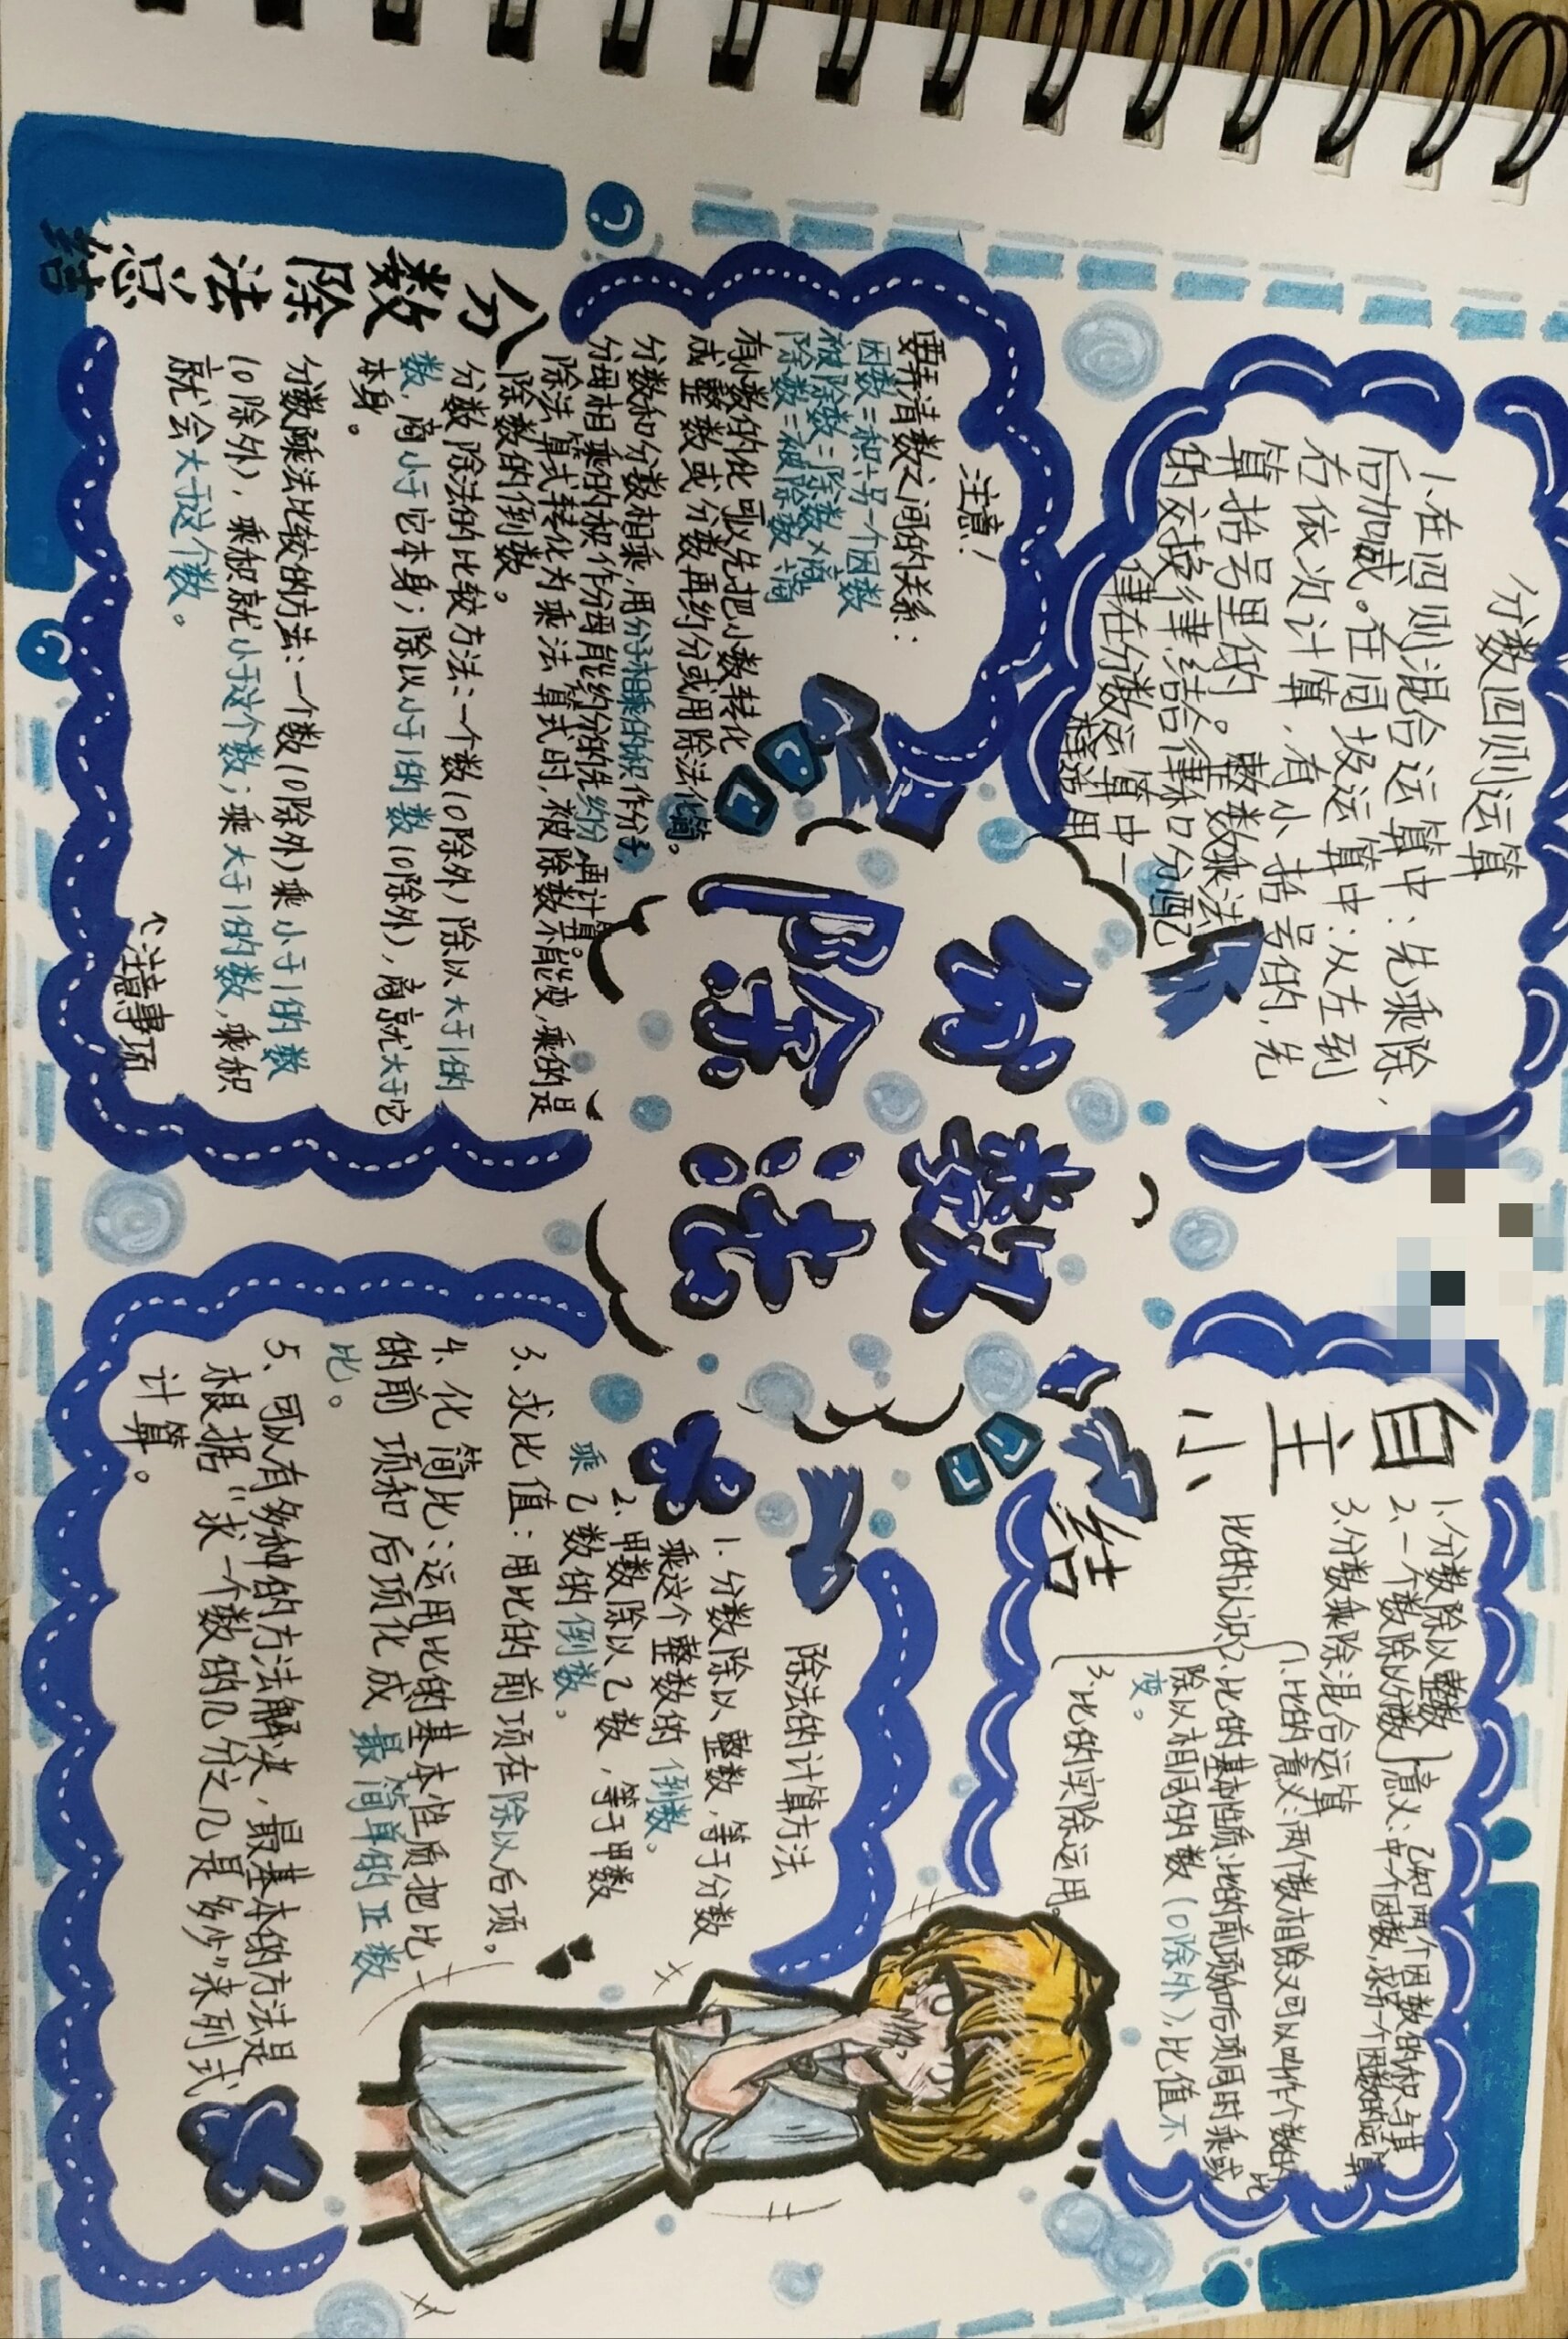 分数四则运算
1.在四则混合运算中：先乘除，
后加减。在同级运算中：从左到
右依次计算，有小括号的，先
算括号里的。整数乘法
的交换律、结合律和分配
律在分数运算中一
样适用
自主小结
1.分数除以整数
2.一个数除以分数
意义：已知两个因数的积与其
中一个因数，求另一个因数的运算
3.分数乘除混合运算
比的认识
1.比的意义：两个数相除又可以叫作个数的比
2.比的基本性质：比的前项和后项同时乘或
除以相同的数（0除外），比值不
变。
3.比的实际运用。
分数
除法
注意！
要弄清数之间的关系：
因数=积÷另一个因数
被除数=除数×商
除数=被除数÷商
有小数的化可以先把小数转化
成整数或分数再约分或用除法化简。
分数和分数相乘，用分子相乘的积作分子，
分母相乘的积作分母能约分的先约分再计算。
除法算式转化为乘法算式时，被除数不能变，乘的是
除数的倒数。
分数除法的比较方法：一个数（0除外）除以大于1的
数，商小于它本身；除以小于1的数（0除外），商就大于它
本身。
分数乘法比较的方法：一个数（0除外）乘小于1的数
（0除外），乘积就小于这个数；乘大于1的数，乘积
就会大于这个数。
注意事项
分数除法总结
除法的计算方法
1.分数除以整数，等于分数
乘这个整数的倒数。
2.甲数除以乙数，等于甲数
乘乙数的倒数。
3.求比值：用比的前项在除以后项。
4.化简比：运用比的基本性质把比
的前项和后项化成最简单的正数
比。
5.可以有多种的方法解决，最基本的方法是
根据“求一个数的几分之几是多少”来列式
计算。